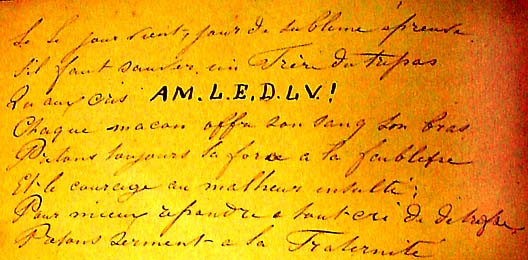 Si le jour vient, jour de sublime épreuve
S'il faut sauver un Frère du trépas
Qu'aux cris AM. L. E. D. L. V. !
Chaque maçon offre son sang son bras
Prêtons toujours la force a la faiblesse
Et le courage au malheur insulté ;
Pour mieux repondre a tout cri de détresse,
Prêtons serment a la Fraternité